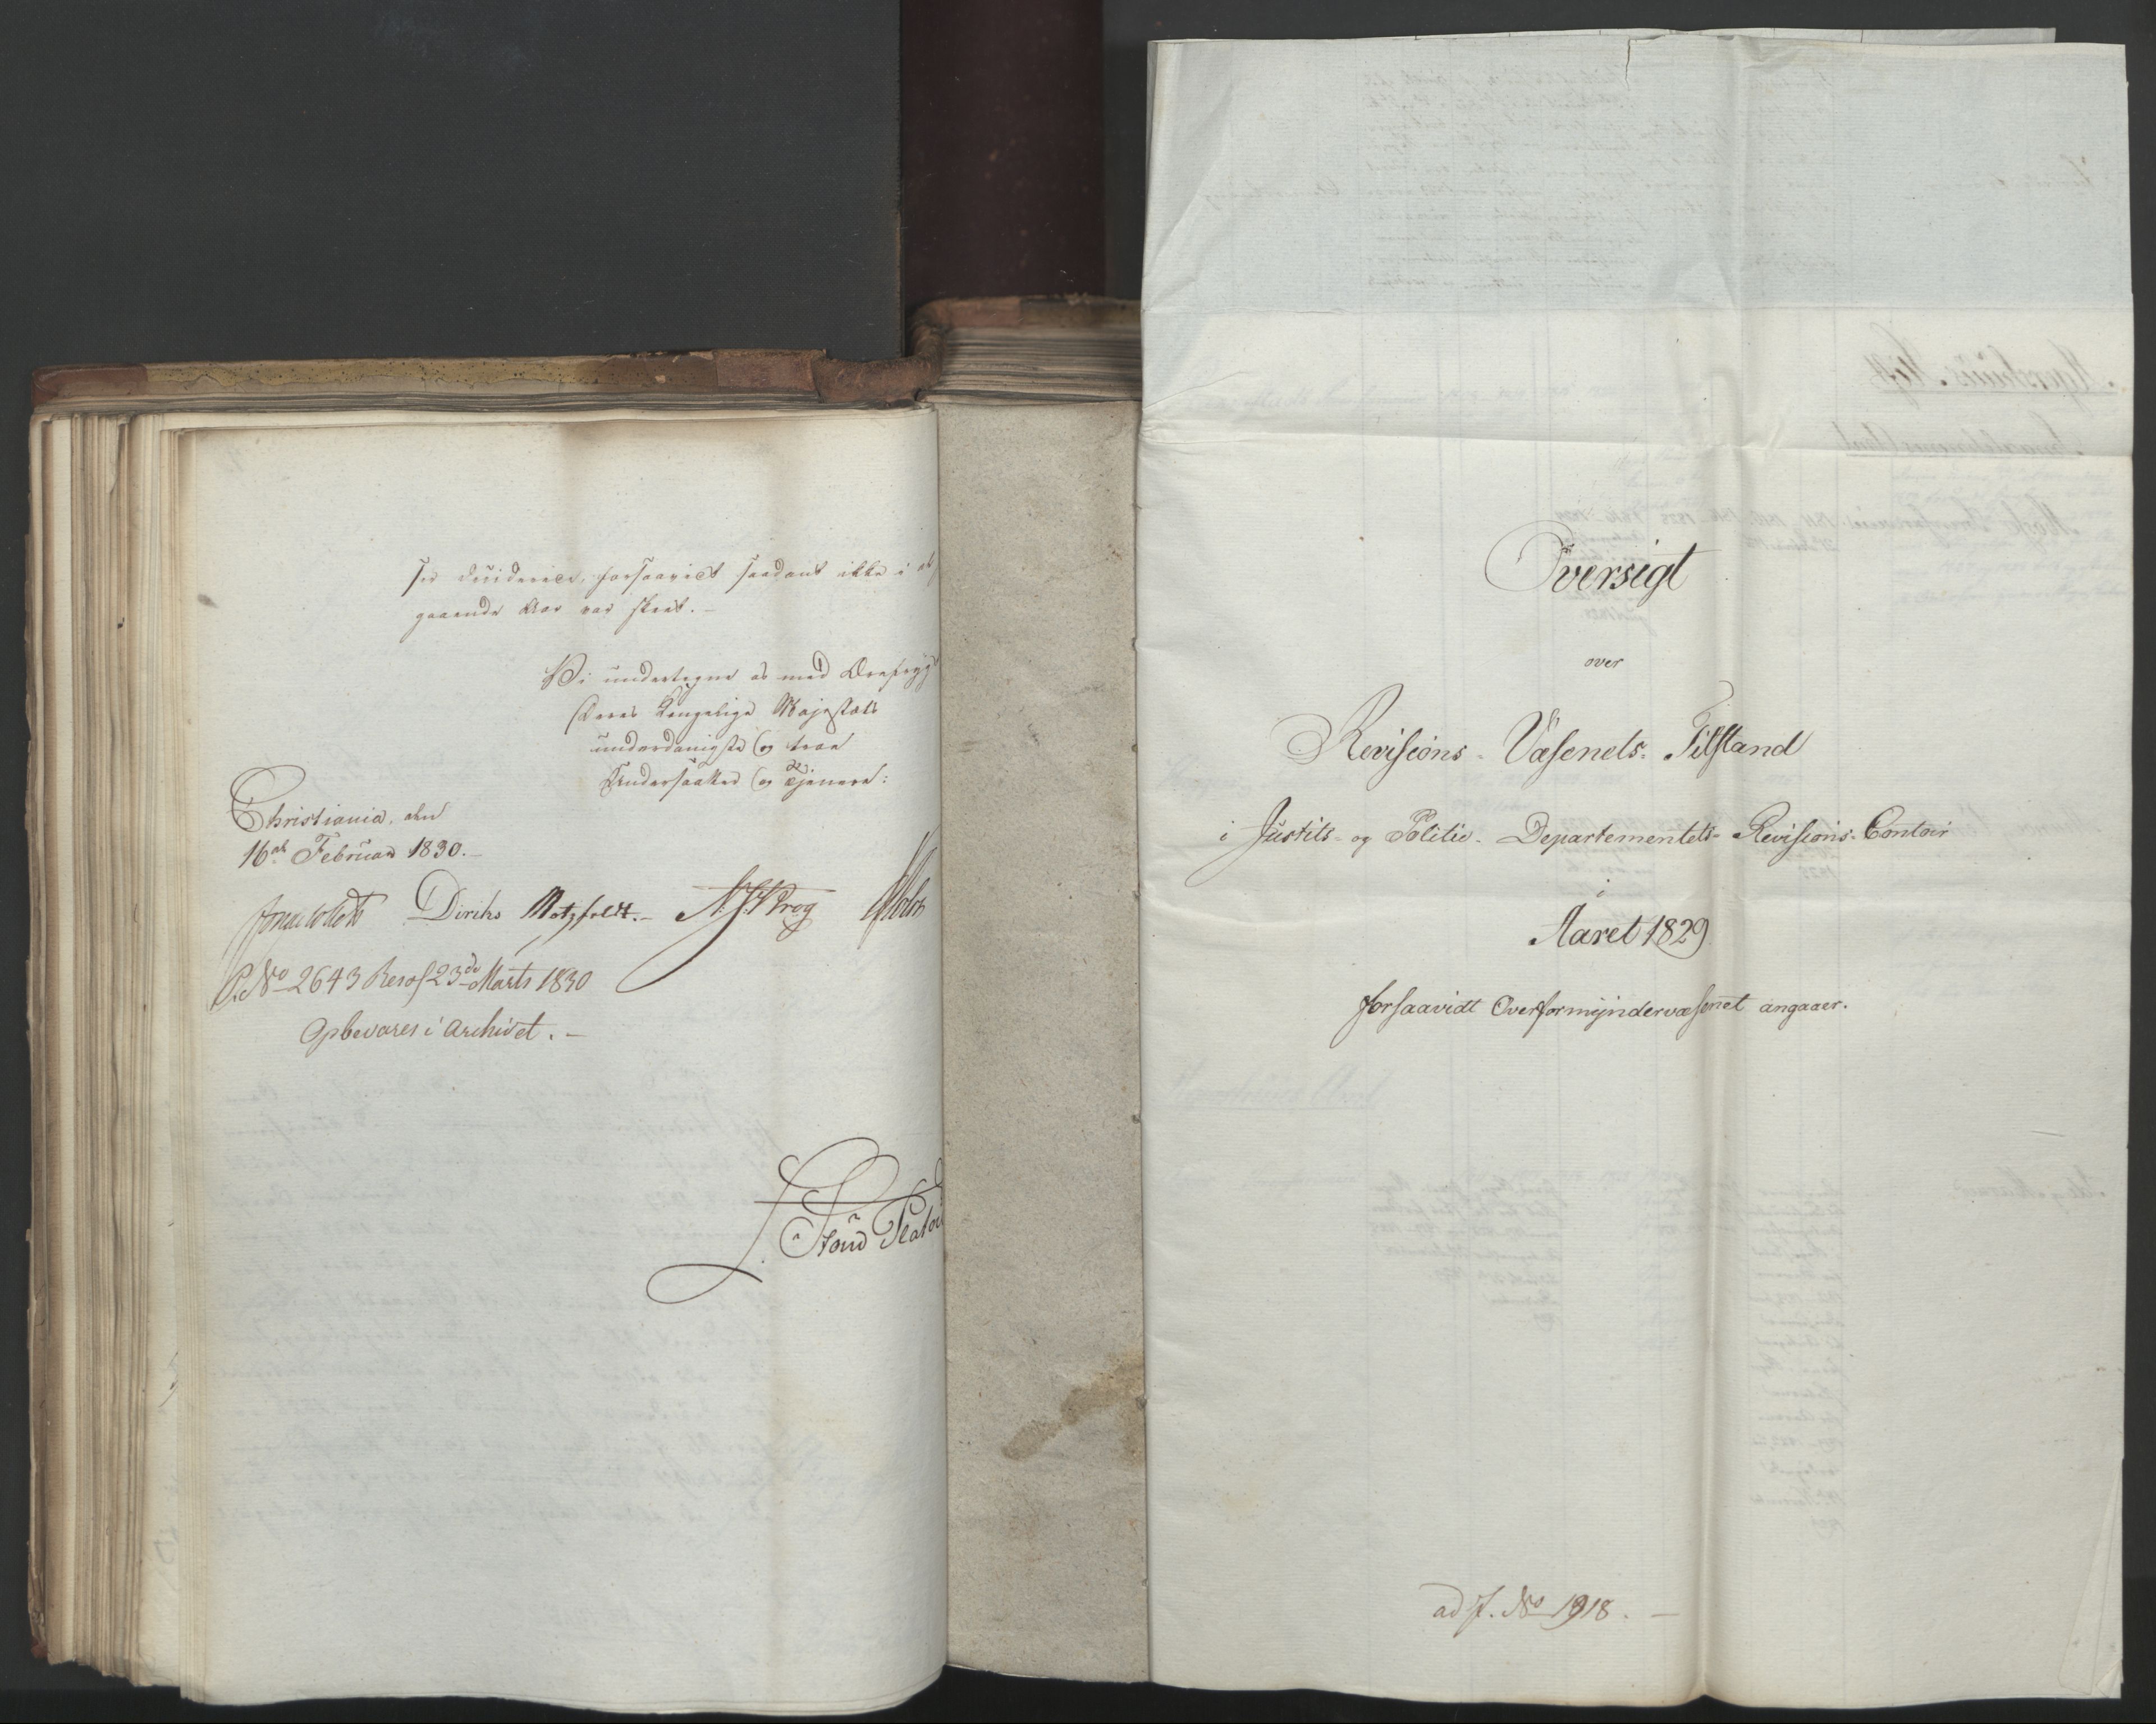 forsaavidt saadant ikke i af
gaaende Aar var skeet.-
Vi undertegne os med Ærefrygt
Deres Kongelige Majestæts
underdanigste og troe
Undersaatter og Tjenere:
Christiania, den
16de Februar 1830.-
Diriks Motzfeldt.- Krog
P. No 2643 Resol 23de Marts 1830
Opbevares i Archivet.-
Oversigt
over
Revisions-Væsenets-Tilstand
i Justits- og Politie-Departementets-Revisions-Contoir
i
Aaret 1829
forsaavidt Overformyndervæsenet angaaer.
ad J. No 1918.-